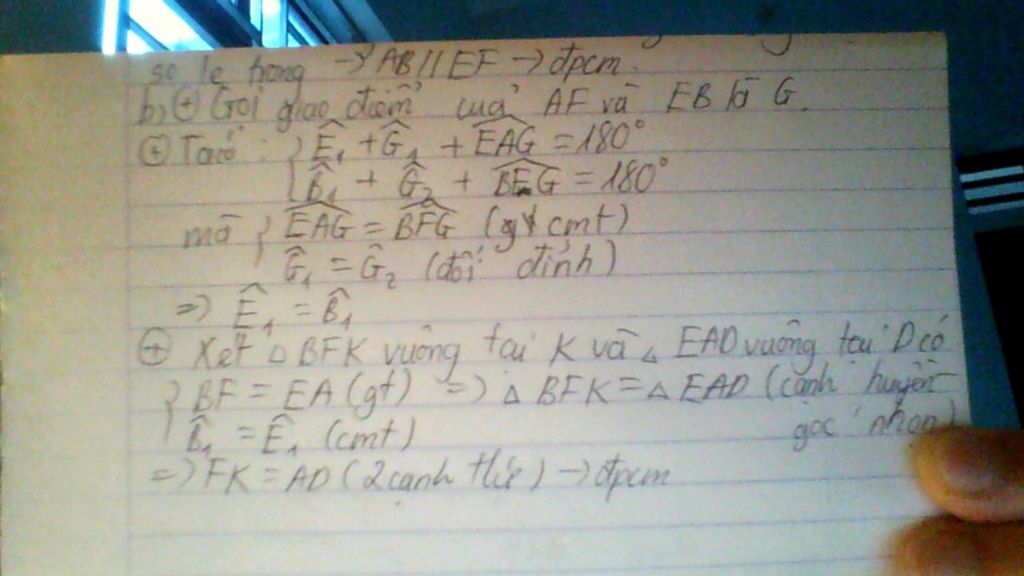 so le trong → AB // EF → đpcm.
b, ⊕ Gọi giao điểm của AF và EB là G.
⊕ Ta có: { Ê₁ + Ĝ₁ + EAG^ = 180°
B̂₁ + Ĝ₂ + BFG^ = 180°
mà { EAG^ = BFG^ (gt cmt)
Ĝ₁ = Ĝ₂ (đối đỉnh)
=> Ê₁ = B̂₁
⊕ Xét △ BFK vuông tại K và △ EAD vuông tại D có
{ BF = EA (gt) => △ BFK = △ EAD (cạnh huyền -
B̂₁ = Ê₁ (cmt) góc nhọn)
=> FK = AD (2 cạnh t/ứ) → đpcm